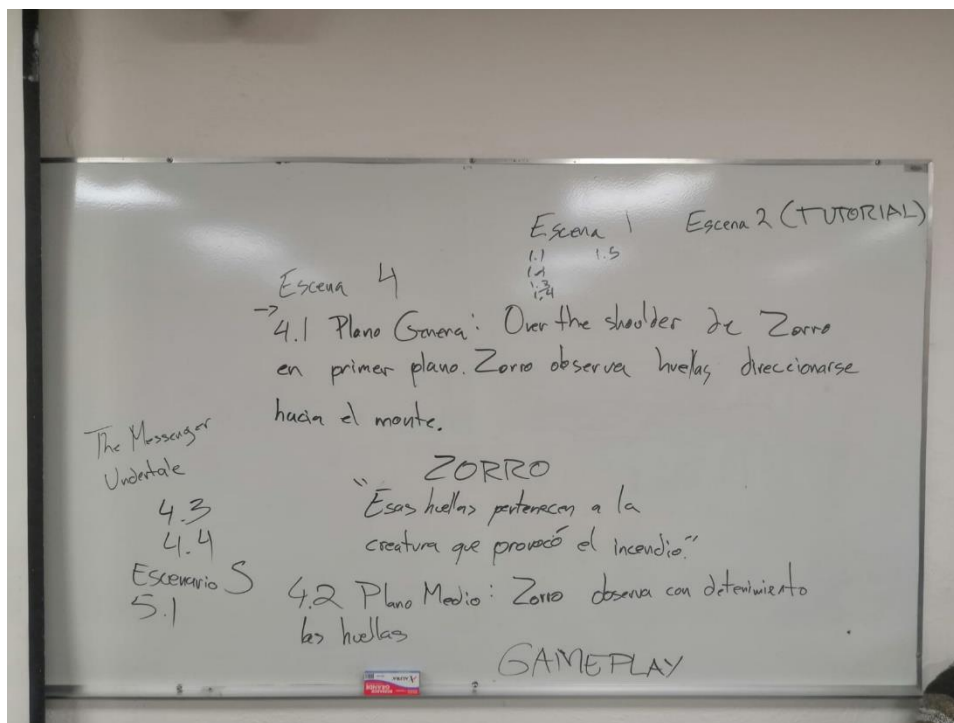 Escena 1 Escena 2 (TUTORIAL)
1.1 1.5
1.2
1.3
1.4
Escena 4
→ 4.1 Plano General: Over the shoulder de Zorro
en primer plano. Zorro observa huellas direccionarse
hacia el monte.
ZORRO
"Esas huellas pertenecen a la
creatura que provocó el incendio."
4.2 Plano Medio: Zorro observa con detenimiento
las huellas
GAMEPLAY
The Messenger
Undertale
4.3
4.4
Escenario 5
5.1